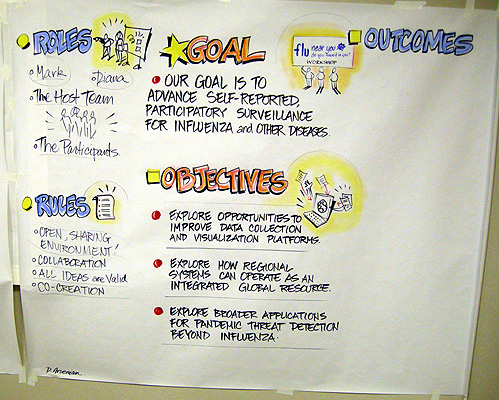 ROLES
Mark
Diana
The Host Team
The Participants
RULES
OPEN, SHARING
ENVIRONMENT!
COLLABORATION
ALL IDEAS are Valid
CO-CREATION
GOAL
OUR GOAL IS TO
ADVANCE SELF-REPORTED,
PARTICIPATORY SURVEILLANCE
FOR INFLUENZA and OTHER DISEASES.
OBJECTIVES
EXPLORE OPPORTUNITIES TO
IMPROVE DATA COLLECTION
AND VISUALIZATION PLATFORMS.
EXPLORE HOW REGIONAL
SYSTEMS CAN OPERATE AS AN
INTEGRATED GLOBAL RESOURCE.
EXPLORE BROADER APPLICATIONS
FOR PANDEMIC THREAT DETECTION
BEYOND INFLUENZA.
flu near you
do you have it in you?
WORKSHOP
OUTCOMES